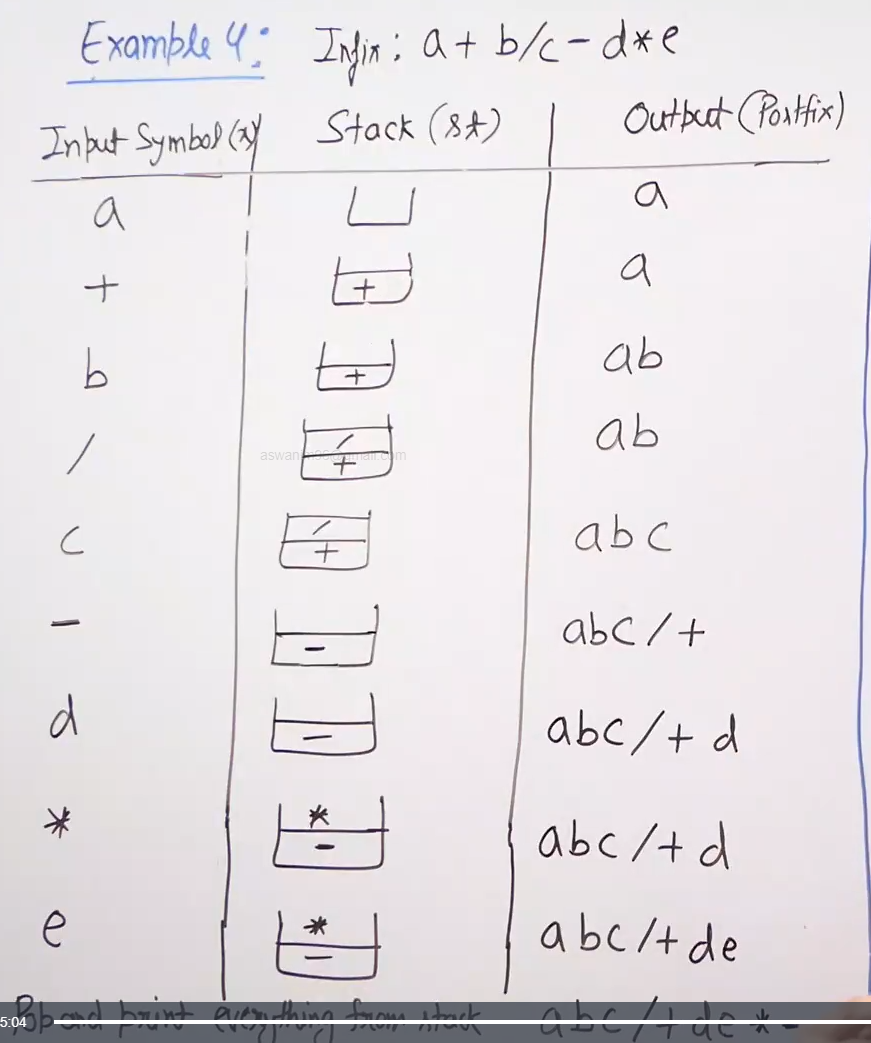 Example 4: Infix: a + b/c - d*e
Input Symbol(x) Stack (st) Output (Postfix)
a a
+ + a
b + ab
/ / + ab
aswan
c / + abc
- - abc/+
d - abc/+ d
* * - abc/+ d
e * - abc/+ de
Pop and print everything from stack abc/+de *-
5:04